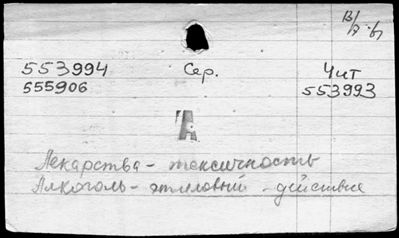 553994 Сер. Чит
555906 553993
А
Лекарства - токсичность
Алкоголь - этиловый - действие